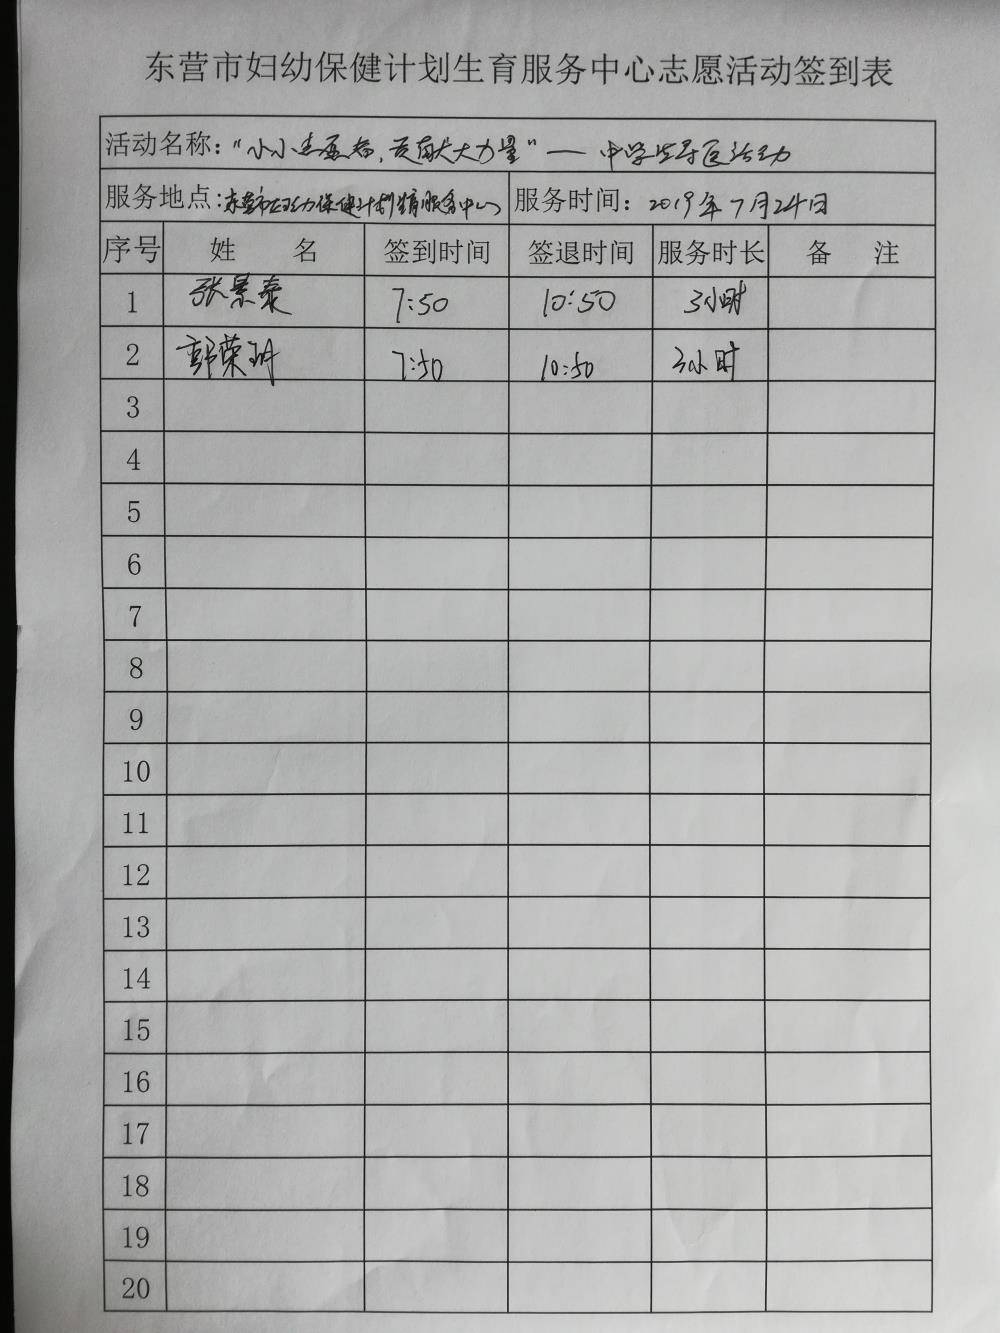 东营市妇幼保健计划生育服务中心志愿活动签到表
活动名称：“小小志愿者，贡献大力量”— 中学生导医活动
服务地点：东营市妇幼保健计划生育服务中心 服务时间：2019年7月24日
序号 姓 名 签到时间 签退时间 服务时长 备 注
1 张景泰 7:50 10:50 3小时
2 郭荣玥 7:50 10:50 3小时
3
4
5
6
7
8
9
10
11
12
13
14
15
16
17
18
19
20